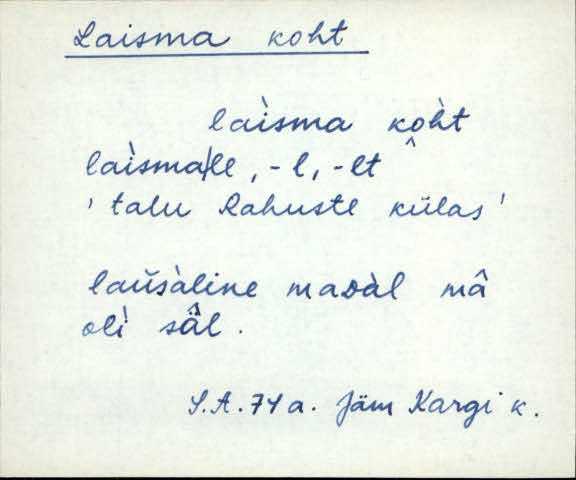 Laisma koht
laìsma kòh̀t
laìsma/le, -l, -lt
'talu Rahuste külas'
laùsàline maᴅàl mâ
olì sâl.
S.A.74a. Jäm Kargi k.